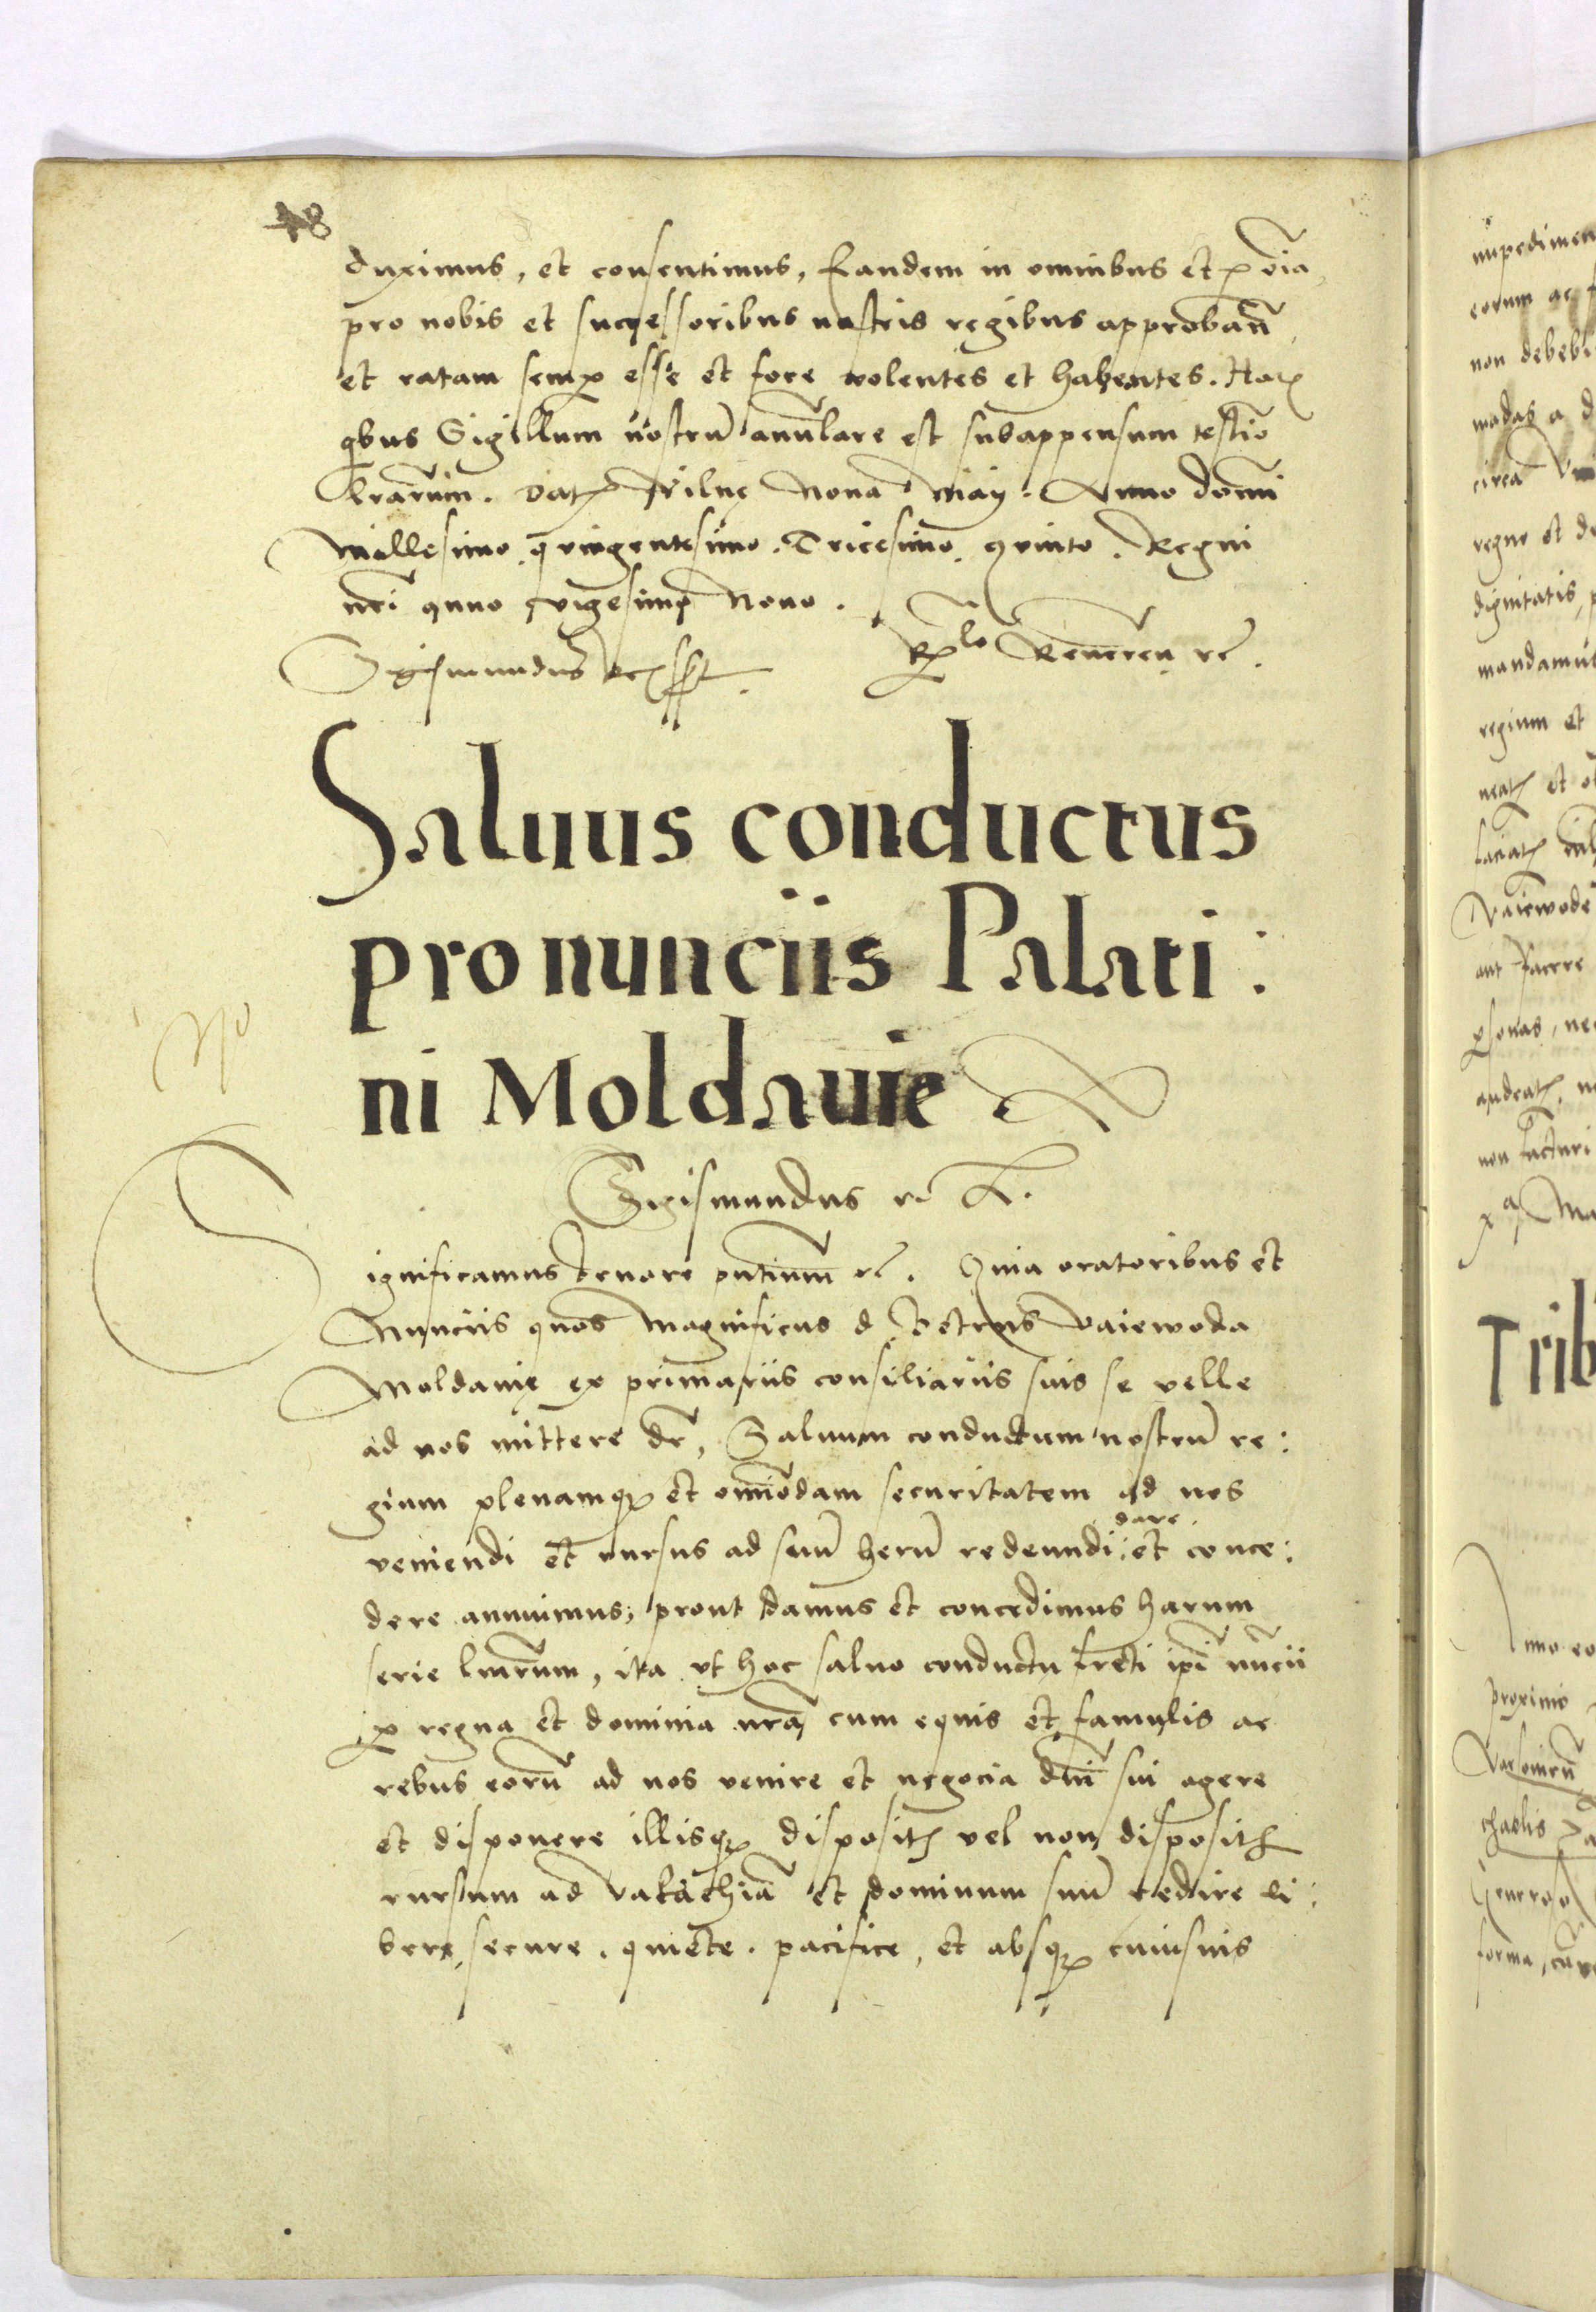 48
duximus, et consentimus, Eandem in omnibus et ꝑ oīa
pro nobis et successoribus nostris regibus approbañ
et ratam semꝑ esse et fore volentes et habentes. Haꝝ
qbus Sigillum nostrū anūlare est subappensum testīo
lrārum. Datꝫ Vilnę Nona May. Anno domī
Millesimo. qvingentesimo. Tricesimo. qvinto. Regni
nrī anno vigesimo Nono.
Sigismundus Rex sst. Reueren rc̄.
Saluus conductus
pro nunciis Palati:
ni Moldauie
Sigismundus rc̄
Significamus tenore pntium rc̄. Quia oratoribus et
Nunciis quos Magnificus d Petrus Vaiewoda
Moldauię ex primariis consiliariis suis se velle
ad nos mittere dr̄, Saluum conductum nostrū re:
gium plenamqꝫ et omīodam securitatem ad nos
veniendi et rursus ad suū herū redeundi: dare et conce:
dere annuimus; prout damus et concedimus harum
serie lrarum, ita vt hoc saluo conductu freti ipī nūcii
ꝑ regna et dominia nrā cum equis et famulis ac
rebus eorū ad nos venire et negocia dnī sui agere
et disponere illisqꝫ dispositꝫ vel non dispositꝫ
rursum ad Valachiā et dominum suū redire li:
bere, secure. quiete. pacifice, et absqꝫ cuiusuis
impedimen
non debebi
circa
dignitatis,
mandamus
regium et
Vaiewode
aut facere
ꝑsonas, ne
non facturi
Ma
Trib
Anno eo
proximo
forma,